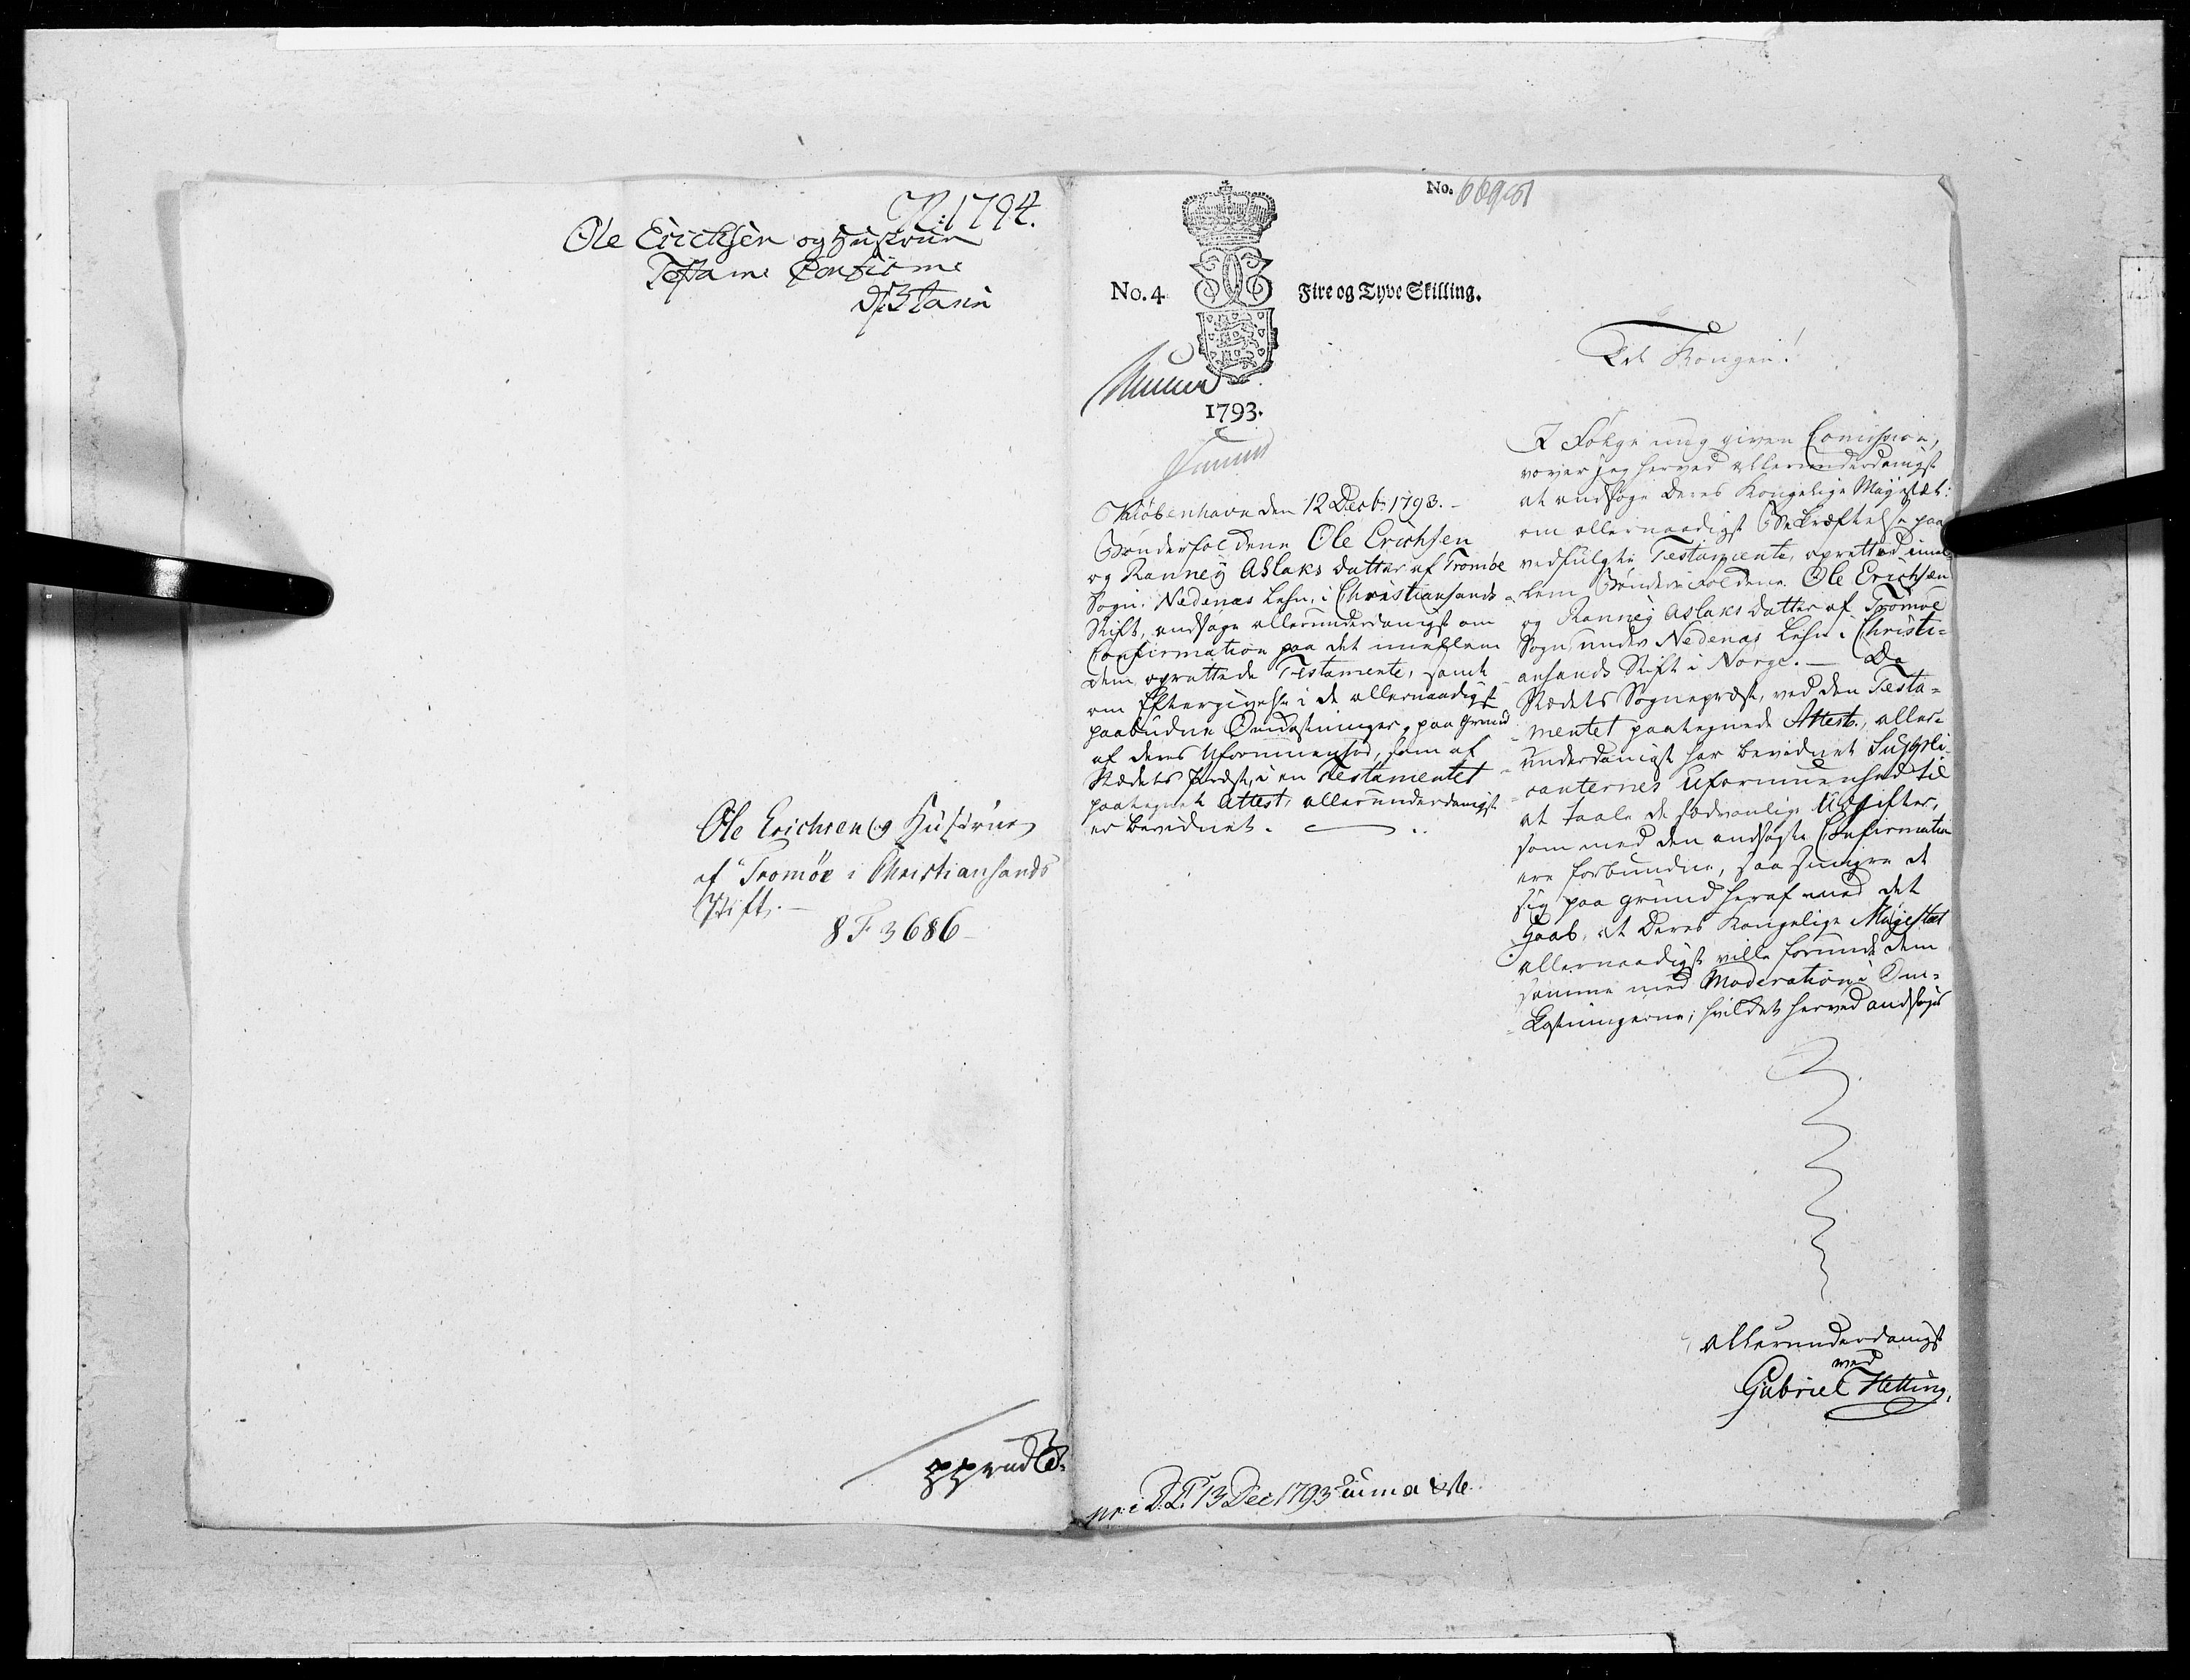 N: 1794.
Ole Erichsen og Hustrue
Testam: Confirm:
d: 3 Janv
Ole Erichsen og Hustrue
af Tromöe i Christiansands
Stift.
8 F 3686
No. 4
Fire og Tyve Skilling.
No. 68961
1793.
Kiøbenhavn den 12 Decb: 1793.
Bønderfolckene Ole Erichsen
og Ranney Aslaks datter af Tromøe
Sogn, Nedenæs Lehn, i Christiansands
Stift, ansøge allerunderdanigst om
Confirmation paa det imellem
dem oprettede Testamente, samt
om Eftergivelse i de allernaadigst
paabudne Omkostninger, paa Grund
af deres Uformuenhed, som af
Stedets Præst, i en Testamentet
paategnet Attest, allerunderdanigst
er bevidnet.
Til Kongen!
I Følge mig given Comission,
vover jeg herved allerunderdanigst
at ansøge Deres Kongelige Mayestæt:
om allernaadigst Bekræftelse paa
vedfulgte Testamente, oprettet imel-
lem Bønderfolckene Ole Erichsen
og Ranneÿ Aslaks datter af Tromöe
Sogn, under Nedenæs Lehn i Christi-
ansands Stift i Norge. — Da
Stedets Sognepræst, ved den Testa-
mentet paategnede Attest, aller-
underdanigst har bevidnet Suppli-
canternes Uformuenhed til
at taale de sædvanlige Udgifter,
som med den ansøgte Confirmation
ere forbundne, saa smigre de
sig paa Grund heraf med det
Haab, at Deres Kongelige Majestæt
allernaadigst ville forunde dem
samme med Moderation i Om-
kostningerne; hvilket herved ansøges
allerunderdanigst
ved
Gabriel Hetting.
pr: i D: C: 13 Dec 1793